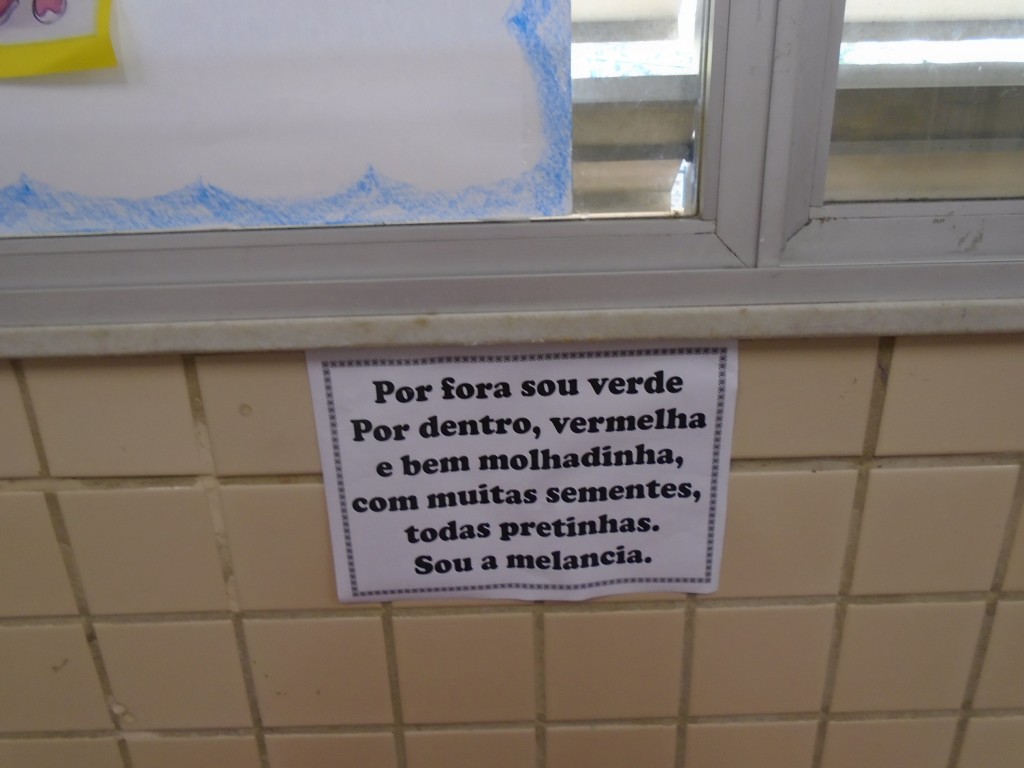 Por fora sou verde
Por dentro, vermelha
e bem molhadinha,
com muitas sementes,
todas pretinhas.
Sou a melancia.